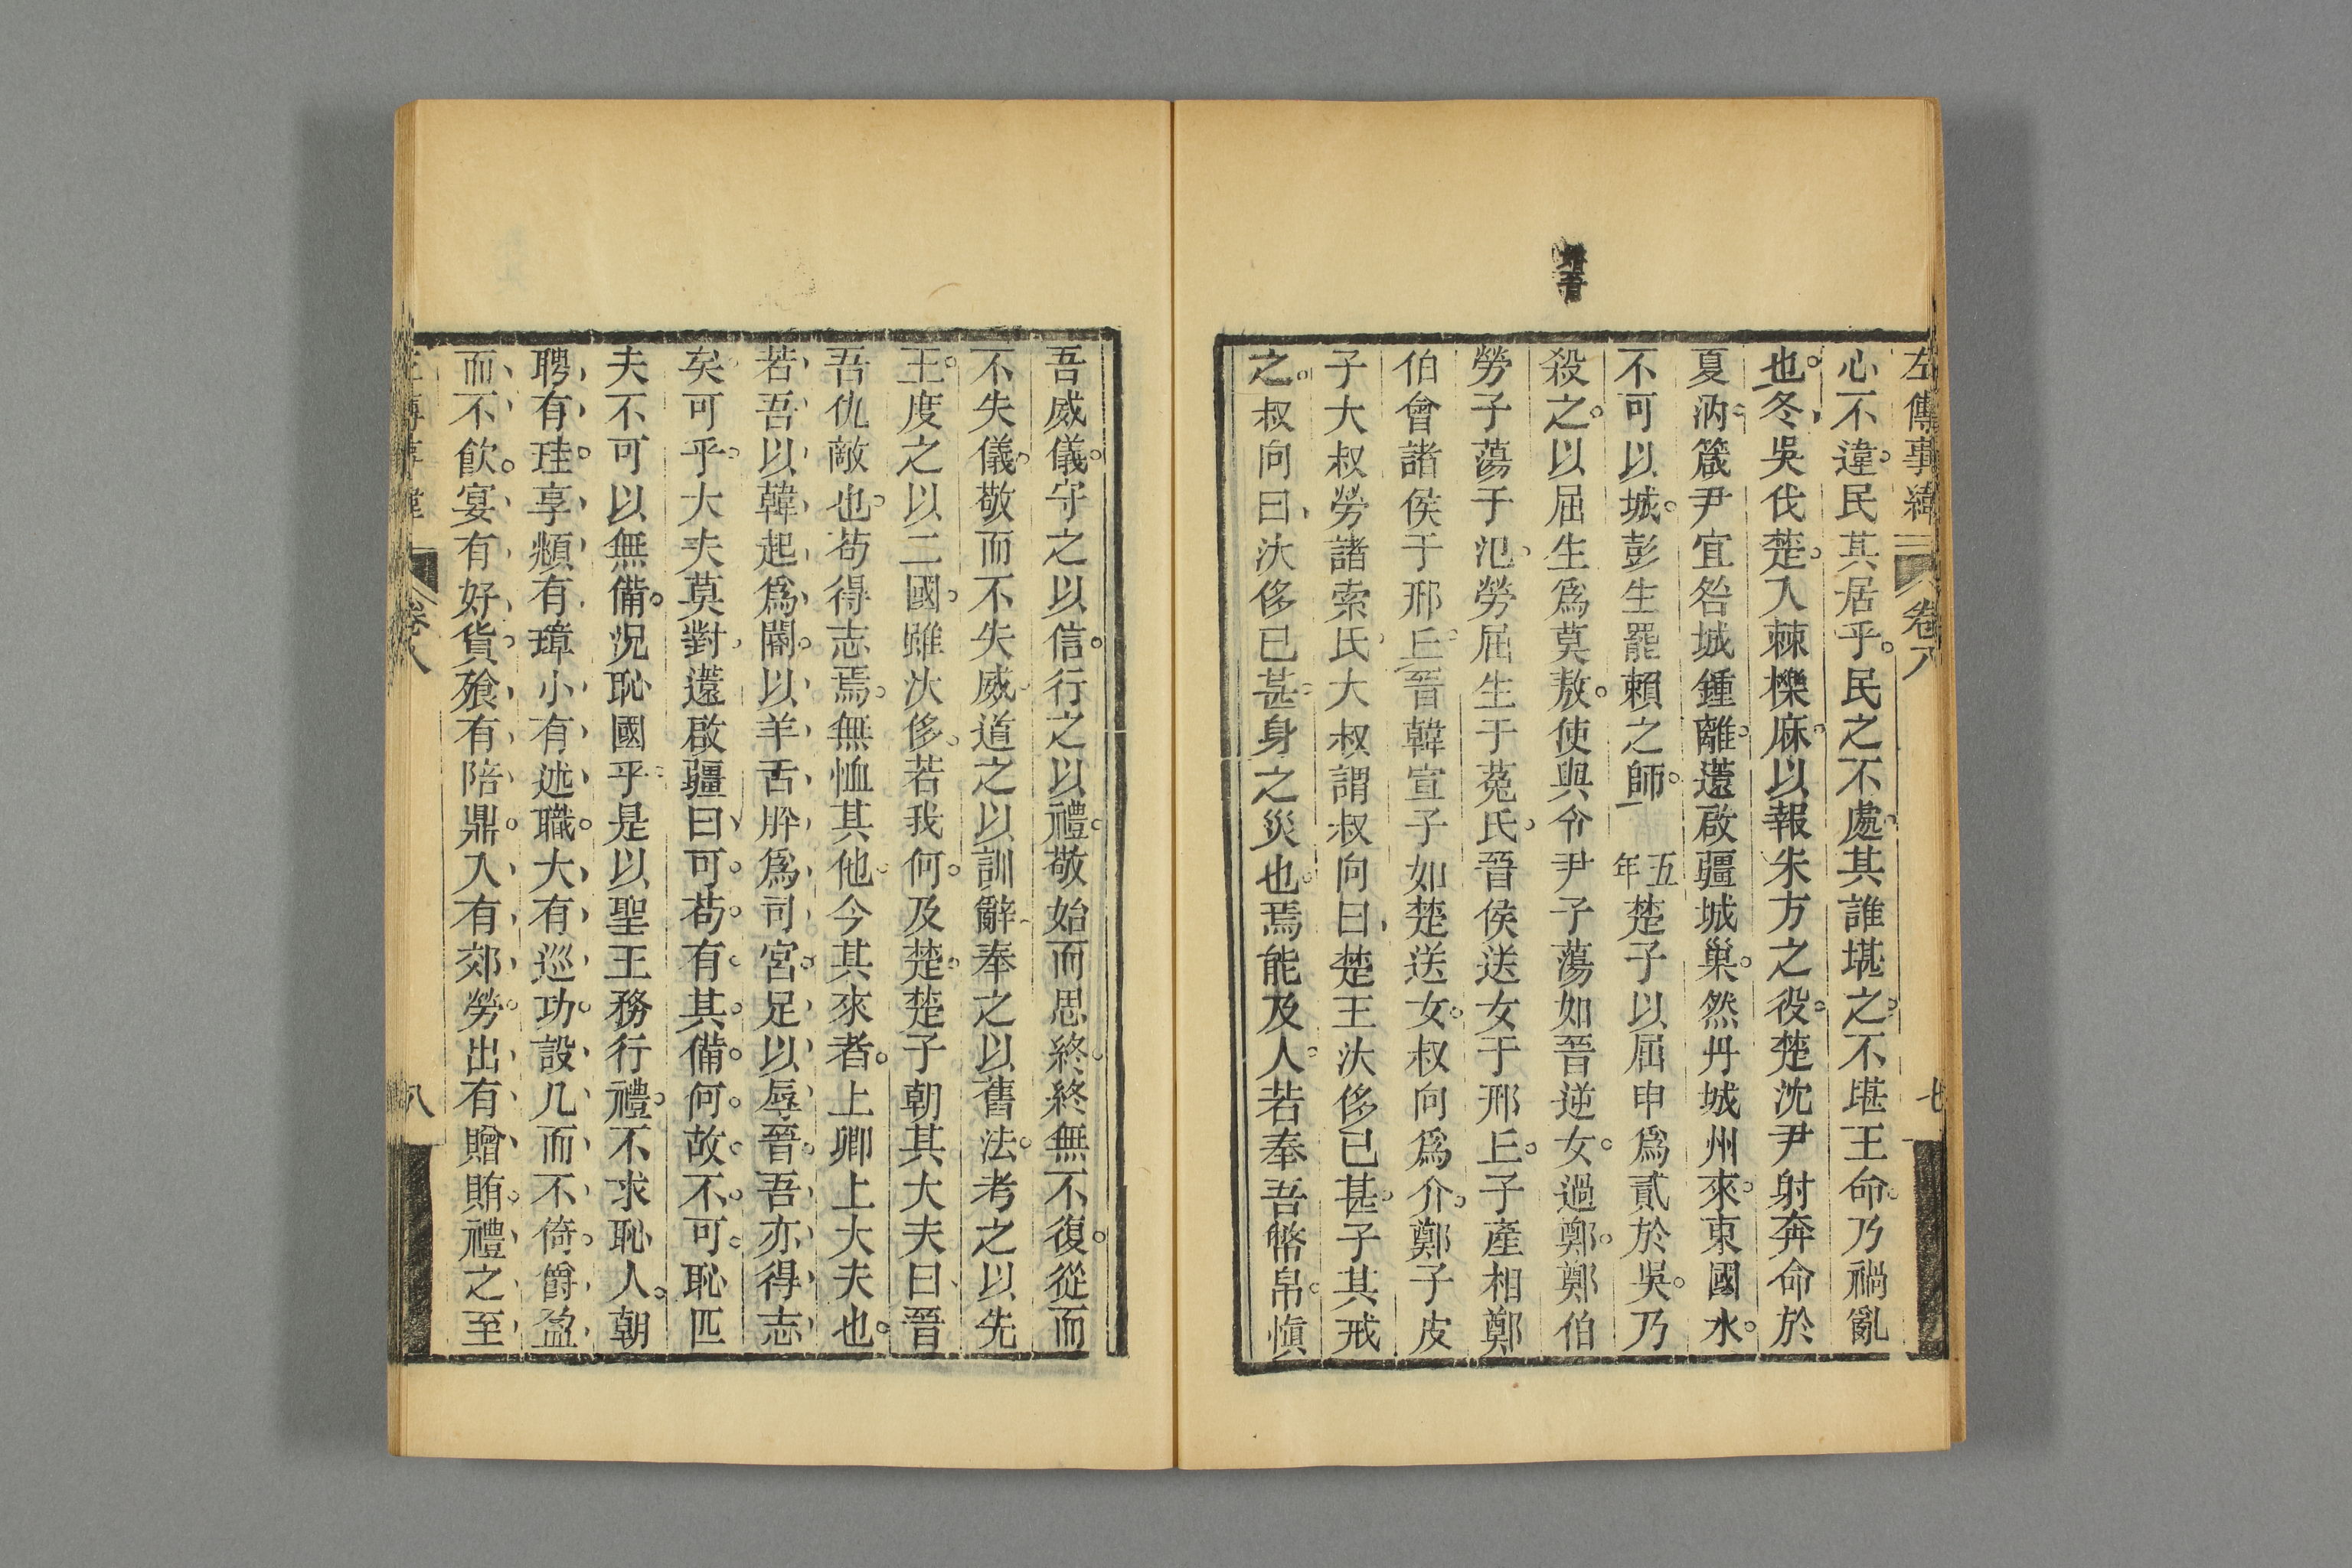 左傳事緯
卷八
七
心不違民其居乎民之不處其誰堪之不堪王命乃禍亂
也冬吳伐楚入棘櫟麻以報朱方之役楚沈尹射奔命於
夏汭箴尹宜咎城鍾離薳啟疆城巢然丹城州來東國水
不可以城彭生罷賴之師
五年
楚子以屈申爲貳於吳乃
殺之以屈生爲莫敖使與令尹子蕩如晉逆女過鄭鄭伯
勞子蕩于氾勞屈生于菟氏晉侯送女于邢丘子產相鄭
伯會諸侯于邢丘晉韓宣子如楚送女叔向爲介鄭子皮
子大叔勞諸索氏大叔謂叔向曰楚王汏侈已甚子其戒
之叔向曰汏侈已甚身之災也焉能及人若奉吾幣帛愼
吾威儀守之以信行之以禮敬始而思終終無不復從而
不失儀敬而不失威道之以訓辭奉之以舊法考之以先
王度之以二國雖汏侈若我何及楚楚子朝其大夫曰晉
吾仇敵也苟得志焉無恤其他今其來者上卿上大夫也
若吾以韓起爲閽以羊舌肸爲司宮足以辱晉吾亦得志
矣可乎大夫莫對薳啟疆曰可苟有其備何故不可恥匹
夫不可以無備況恥國乎是以聖王務行禮不求恥人朝
聘有珪享覜有璋小有述職大有巡功設几而不倚爵盈
而不飲宴有好貨飱有陪鼎入有郊勞出有贈賄禮之至
卷八
八